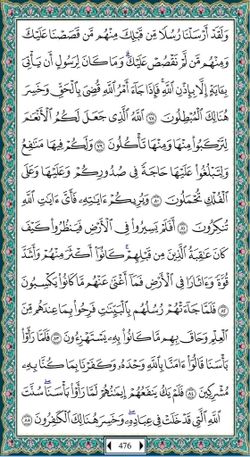 وَلَقَدْ أَرْسَلْنَا رُسُلًا مِّن قَبْلِكَ مِنْهُم مَّن قَصَصْنَا عَلَيْكَ
وَمِنْهُم مَّن لَّمْ نَقْصُصْ عَلَيْكَ ۗ وَمَا كَانَ لِرَسُولٍ أَن يَأْتِىَ
بِـَٔايَةٍ إِلَّا بِإِذْنِ ٱللَّهِ ۚ فَإِذَا جَآءَ أَمْرُ ٱللَّهِ قُضِىَ بِٱلْحَقِّ وَخَسِرَ
هُنَالِكَ ٱلْمُبْطِلُونَ ٧٨ ٱللَّهُ ٱلَّذِى جَعَلَ لَكُمُ ٱلْأَنْعَٰمَ
لِتَرْكَبُوا۟ مِنْهَا وَمِنْهَا تَأْكُلُونَ ٧٩ وَلَكُمْ فِيهَا مَنَٰفِعُ
وَلِتَبْلُغُوا۟ عَلَيْهَا حَاجَةً فِى صُدُورِكُمْ وَعَلَيْهَا وَعَلَى
ٱلْفُلْكِ تُحْمَلُونَ ٨٠ وَيُرِيكُمْ ءَايَٰتِهِۦ فَأَىَّ ءَايَٰتِ ٱللَّهِ
تُنكِرُونَ ٨١ أَفَلَمْ يَسِيرُوا۟ فِى ٱلْأَرْضِ فَيَنظُرُوا۟ كَيْفَ
كَانَ عَٰقِبَةُ ٱلَّذِينَ مِن قَبْلِهِمْ ۚ كَانُوٓا۟ أَكْثَرَ مِنْهُمْ وَأَشَدَّ
قُوَّةً وَءَاثَارًا فِى ٱلْأَرْضِ فَمَآ أَغْنَىٰ عَنْهُم مَّا كَانُوا۟ يَكْسِبُونَ
٨٢ فَلَمَّا جَآءَتْهُمْ رُسُلُهُم بِٱلْبَيِّنَٰتِ فَرِحُوا۟ بِمَا عِندَهُم مِّنَ
ٱلْعِلْمِ وَحَاقَ بِهِم مَّا كَانُوا۟ بِهِۦ يَسْتَهْزِءُونَ ٨٣ فَلَمَّا رَأَوْا۟
بَأْسَنَا قَالُوٓا۟ ءَامَنَّا بِٱللَّهِ وَحْدَهُۥ وَكَفَرْنَا بِمَا كُنَّا بِهِۦ
مُشْرِكِينَ ٨٤ فَلَمْ يَكُ يَنفَعُهُمْ إِيمَٰنُهُمْ لَمَّا رَأَوْا۟ بَأْسَنَا ۖ سُنَّتَ
ٱللَّهِ ٱلَّتِى قَدْ خَلَتْ فِى عِبَادِهِۦ ۖ وَخَسِرَ هُنَالِكَ ٱلْكَٰفِرُونَ ٨٥
476